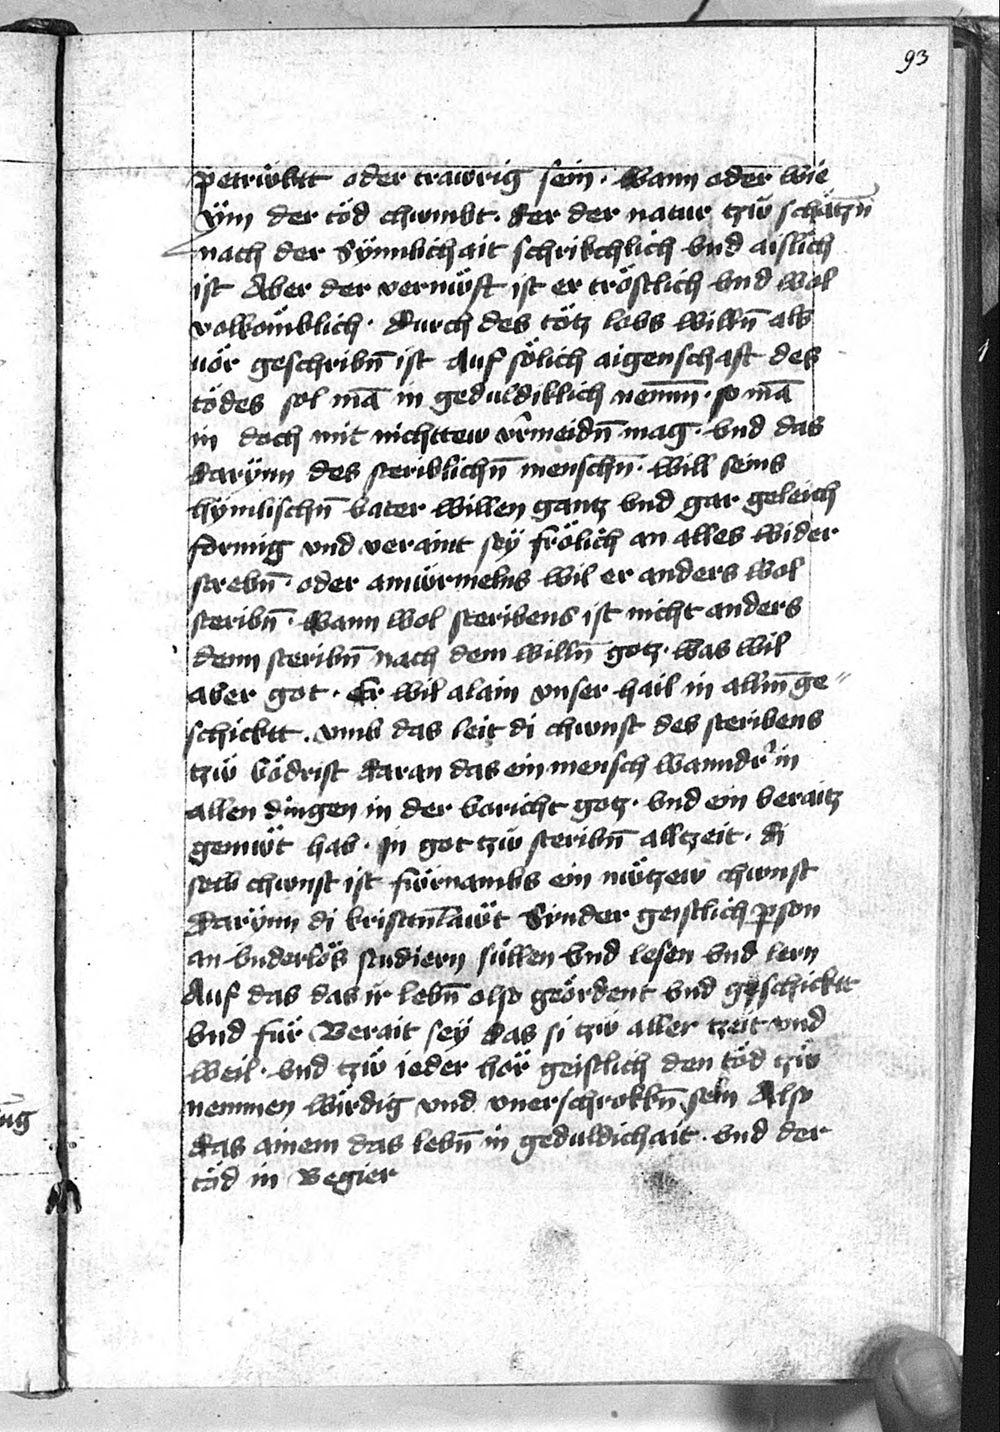 93
petrübtt oder trawrig sein. Wann oder wie
ÿm der töd chumbt. Der der natur tzü schätzn̄
nach der Sÿnnlichait schrikchlich vnd aislich
ist Aber der vernüfft ist er tröstlich vnd wol
volkömblich. Durch des tötz lobs willn̄ als
uör geschribn̄ ist Auf sölich aigenschaft des
tödes sol mā in geduldiklich nemen. so mā
in doch mit nichttew vermeidn̄ mag. vnd das
Darÿnn des steriblichn̄ menschn̄. Will seins
hÿmlischn̄ vater willen gantz vnd gar geleich
formig vnd veraint seÿ frölich an alles wider
strebn̄. oder anmürmelns wil er anders wol
steribn̄. Wann wol steribens ist nicht anders
denn steribn̄ nach dem willn̄ gotz. was wil
aber got. Er wil alain vnser hail in alln̄ ge
schicktt. vmb das leit di chunst des steribens
tzü vödrist daran das ein mensch wanndr in
allen dingen in der voricht gotz. vnd ein beraitz
gemüt hab. In got tzü steribn̄ alltzeit. di
selb chunst ist fürnambs ein nützew chunst
Darÿnn di kristnläwt Sunder geistlich pson
an vnderlös studiern süllen vnd lesen vnd lern
Auf das das ir lebn̄ also geördent vnd geschicktt
vnd für Berait seÿ das si tzü aller tzeit vnd
weil. vnd tzü ieder hör geistlich den töd tzü
nemmen wirdig vnd vnerschrokkn̄ sein Also
das ainem das lebn̄ in geduldichait. vnd der
töd in Begier
ug